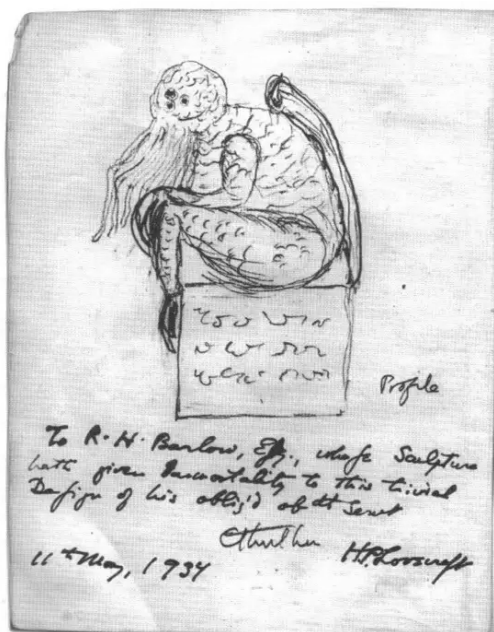 Profile
To R. H. Barlow, Eſq., whoſe Sculpture
hath given Immortality to this trivial
Deſign of his oblig'd obdt Servt
Cthulhu
H P Lovecraft
11th May, 1934